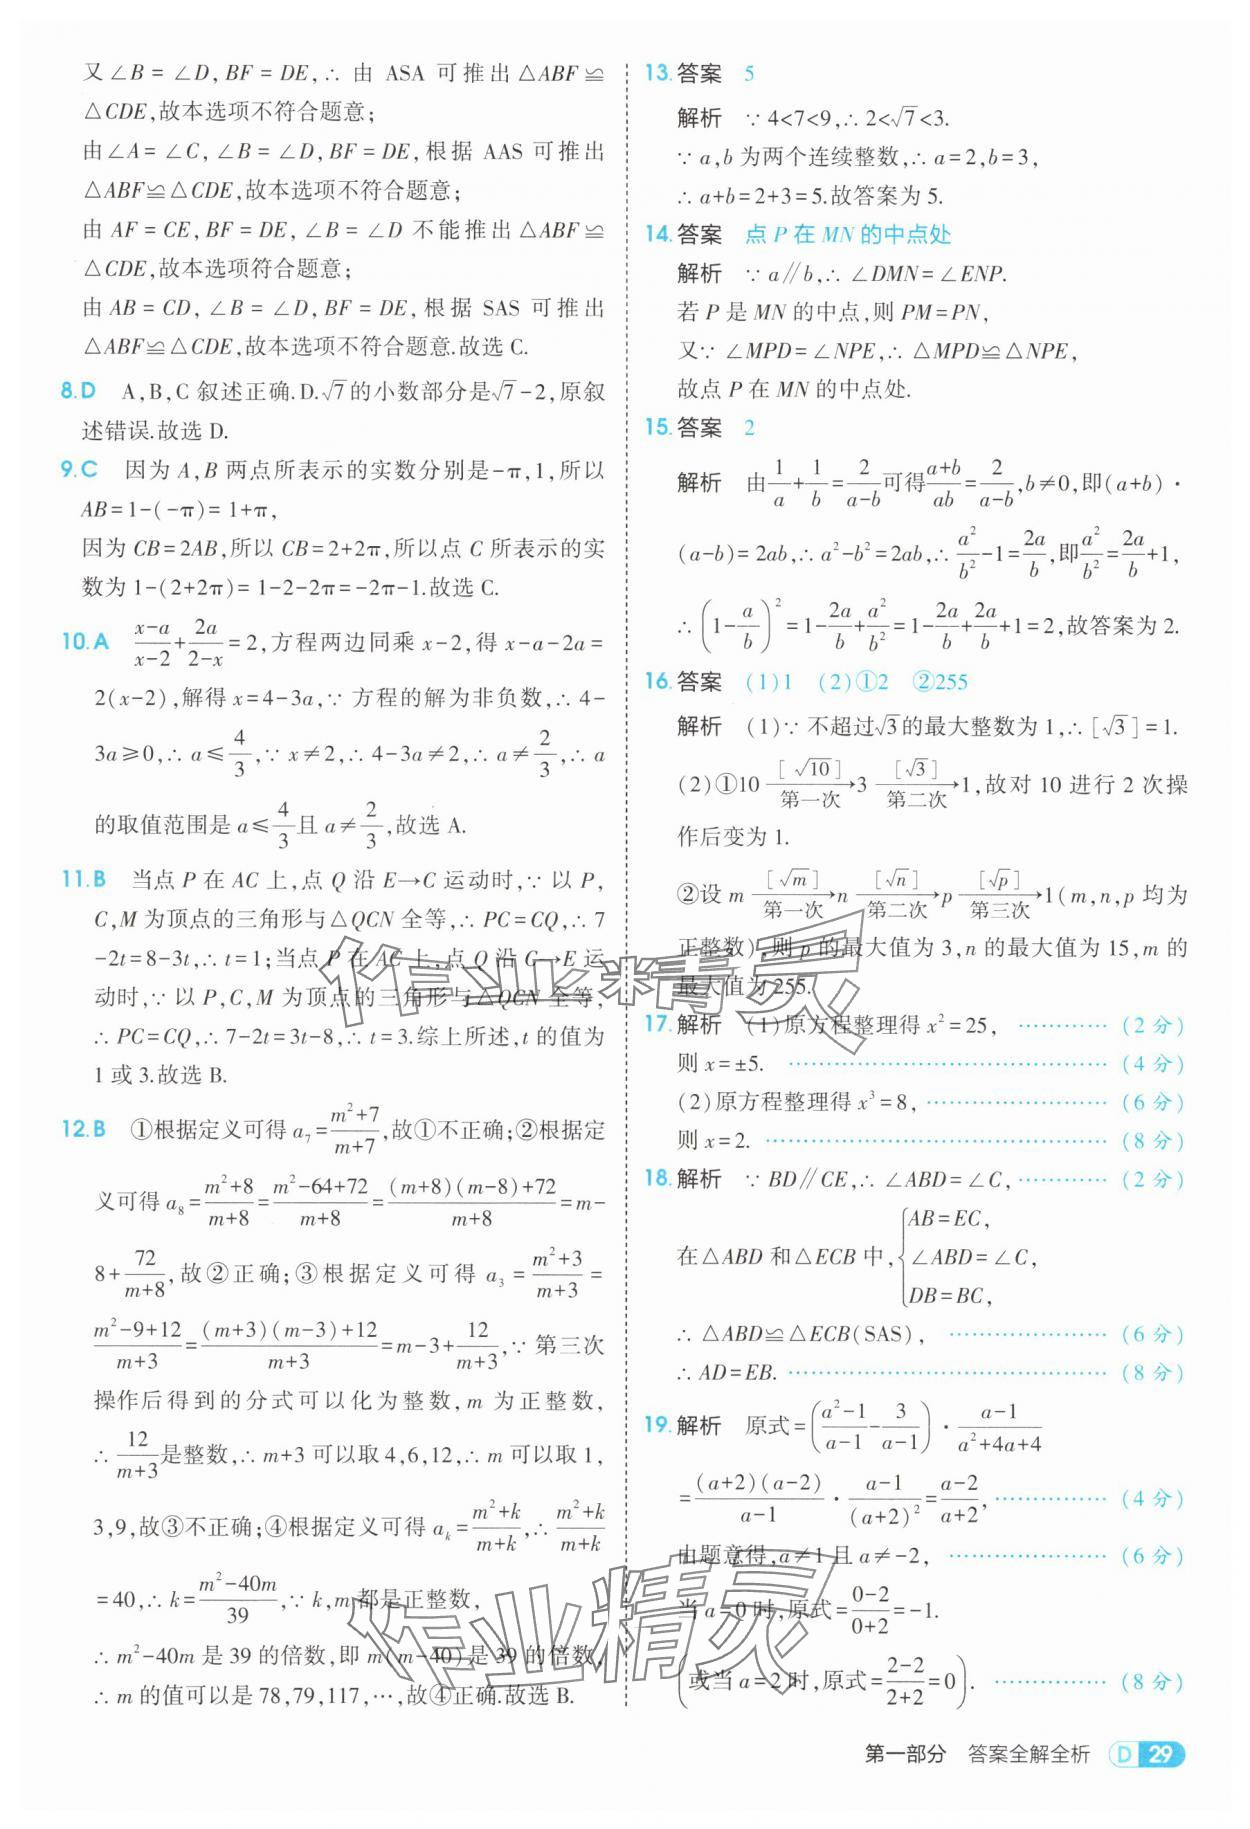 又∠B=∠D,BF=DE,∴ 由 ASA 可推出△ABF≌
△CDE,故本选项不符合题意;
由∠A=∠C,∠B=∠D,BF=DE,根据 AAS 可推出
△ABF≌△CDE,故本选项不符合题意;
由 AF=CE,BF=DE,∠B=∠D 不能推出△ABF≌
△CDE,故本选项符合题意;
由 AB=CD,∠B=∠D,BF=DE,根据 SAS 可推出
△ABF≌△CDE,故本选项不符合题意.故选 C.
8.D A,B,C 叙述正确.D.√7的小数部分是√7-2,原叙
述错误.故选 D.
9.C 因为 A,B 两点所表示的实数分别是-π,1,所以
AB=1-(-π)=1+π,
因为 CB=2AB,所以 CB=2+2π,所以点 C 所表示的实
数为 1-(2+2π)=1-2-2π=-2π-1.故选 C.
10.A (x-a)/(x-2)+2a/(2-x)=2,方程两边同乘 x-2,得 x-a-2a=
2(x-2),解得 x=4-3a,∵ 方程的解为非负数,∴ 4-
3a≥0,∴ a≤4/3,∵ x≠2,∴ 4-3a≠2,∴ a≠2/3,∴ a
的取值范围是 a≤4/3且 a≠2/3,故选 A.
11.B 当点 P 在 AC 上,点 Q 沿 E→C 运动时,∵ 以 P,
C,M 为顶点的三角形与△QCN 全等,∴ PC=CQ,∴ 7
-2t=8-3t,∴ t=1;当点 P 在 AC 上,点 Q 沿 C→E 运
动时,∵ 以 P,C,M 为顶点的三角形与△QCN 全等,
∴ PC=CQ,∴ 7-2t=3t-8,∴ t=3.综上所述,t 的值为
1 或 3.故选 B.
12.B ①根据定义可得 a₇=(m²+7)/(m+7),故①不正确;②根据定
义可得 a₈=(m²+8)/(m+8)=(m²-64+72)/(m+8)=((m+8)(m-8)+72)/(m+8)=m-
8+72/(m+8),故②正确;③根据定义可得 a₃=(m²+3)/(m+3)=
(m²-9+12)/(m+3)=((m+3)(m-3)+12)/(m+3)=m-3+12/(m+3),∵ 第三次
操作后得到的分式可以化为整数,m 为正整数,
∴ 12/(m+3)是整数,∴ m+3 可以取 4,6,12,∴ m 可以取 1,
3,9,故③不正确;④根据定义可得 aₖ=(m²+k)/(m+k),∴ (m²+k)/(m+k)
=40,∴ k=(m²-40m)/39,∵ k,m 都是正整数,
∴ m²-40m 是 39 的倍数,即 m(m-40)是 39 的倍数,
∴ m 的值可以是 78,79,117,…,故④正确.故选 B.
13.答案 5
解析 ∵ 4<7<9,∴ 2<√7<3.
∵ a,b 为两个连续整数,∴ a=2,b=3,
∴ a+b=2+3=5.故答案为 5.
14.答案 点 P 在 MN 的中点处
解析 ∵ a∥b,∴ ∠DMN=∠ENP.
若 P 是 MN 的中点,则 PM=PN,
又∵ ∠MPD=∠NPE,∴ △MPD≌△NPE,
故点 P 在 MN 的中点处.
15.答案 2
解析 由1/a+1/b=2/(a-b)可得(a+b)/ab=2/(a-b),b≠0,即(a+b)·
(a-b)=2ab,∴ a²-b²=2ab,∴ a²/b²-1=2a/b,即a²/b²=2a/b+1,
∴ (1-a/b)²=1-2a/b+a²/b²=1-2a/b+2a/b+1=2,故答案为 2.
16.答案 (1)1 (2)①2 ②255
解析 (1)∵ 不超过√3的最大整数为 1,∴ [√3]=1.
(2)①10 —[√10] 第一次→3 —[√3] 第二次→1,故对 10 进行 2 次操
作后变为 1.
②设 m —[√m] 第一次→n —[√n] 第二次→p —[√p] 第三次→1(m,n,p 均为
正整数),则 p 的最大值为 3,n 的最大值为 15,m 的
最大值为 255.
17.解析 (1)原方程整理得 x²=25, ………… (2 分)
则 x=±5. ………… (4 分)
(2)原方程整理得 x³=8, ………… (6 分)
则 x=2. ………… (8 分)
18.解析 ∵ BD∥CE,∴ ∠ABD=∠C, ………… (2 分)
在△ABD 和△ECB 中,{AB=EC,
∠ABD=∠C,
DB=BC,
∴ △ABD≌△ECB(SAS), ………… (6 分)
∴ AD=EB. ………… (8 分)
19.解析 原式=((a²-1)/(a-1)-3/(a-1))·(a-1)/(a²+4a+4)
=((a+2)(a-2))/(a-1)·(a-1)/(a+2)²=(a-2)/(a+2), ………… (4 分)
由题意得,a≠1 且 a≠-2, ………… (6 分)
当 a=0 时,原式=(0-2)/(0+2)=-1.
(或当 a=2 时,原式=(2-2)/(2+2)=0). ………… (8 分)
作业精灵
作业精灵
第一部分 答案全解全析 D 29